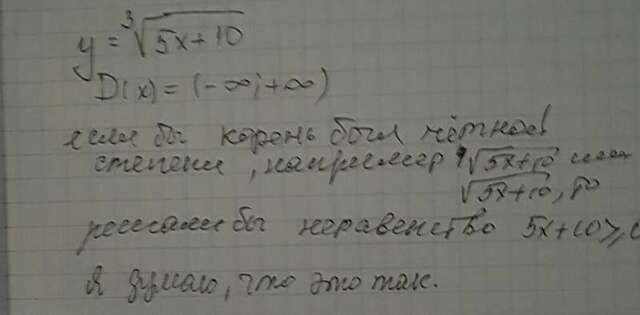 y = ∛(5x+10)
D(x) = (-∞; +∞)
если бы корень был чётной
степени, например ⁴√5x+10 или
√5x+10, то
решали бы неравенство 5x+10≥0
Я думаю, что это так.